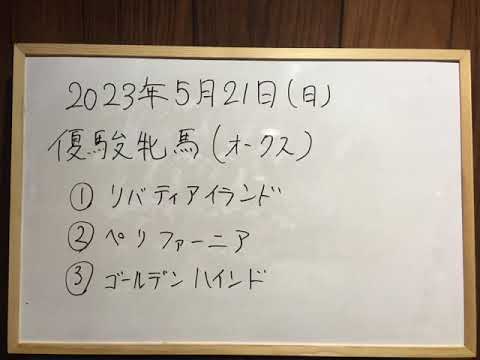 2023年5月21日(日)
優駿牝馬(オークス)
① リバティアイランド
② ペリファーニア
③ ゴールデンハインド